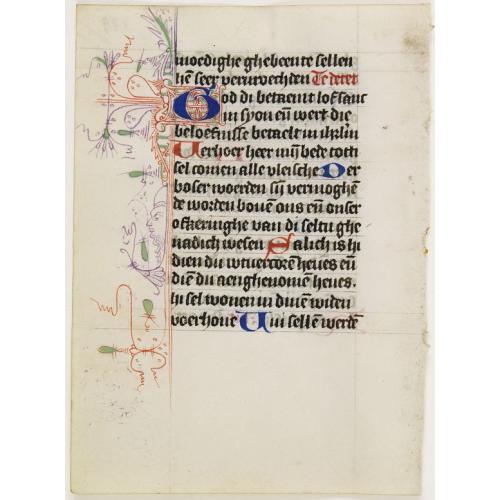 moedighe ghebeente sellen
hē seer verurechden Te decet
God di betaemt lofsanc
in syon eñ wert die
beloefnisse betaelt in ihrlm
Uerhoer heer mijn bede tott
sel comen alle vleische Der
boser woerden sij vermoghē
de worden bouē ons eñ onser
ofkeringhe van di seltu ghe
nadich wesen Salich is hi
dien du wtuercorē heues eñ
diē du aenghenomē heues.
hi sel wonen in dinē wtden
voerhoue Wi sellē werdē